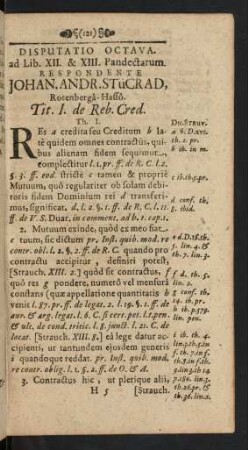 (121)
DISPUTATIO OCTAVA.
ad Lib. XII. & XIII. Pandectarum.
RESPONDENTE
JOHAN. ANDR. STüCRAD,
Rotenbergâ-Hassô.
Tit. I. de Reb. Cred.
Th. I.
RES a credita seu Creditum b la-
tè quidem omnes contractus, qui-
bus alienam fidem sequimur,
complectitur l. 1. pr. ff. de R. C. l. 2.
§. 3. ff. eod. strictè c tamen & propriè
Mutuum, quò regulariter ob solam debi-
toris fidem Dominium rei d transferi-
mus, significat. d. l. 2. §. 1. ff. de R. C. l. 11.
ff. de V. S. Duar. in comment. ad b. t. cap. 1.
2. Mutuum exinde, quòd ex meo fiat
e tuum, sic dictum pr. Inst. quib. mod. re
contr. obl. l. 2. §. 2. ff. de R. C. quando pro
contractu accipitur, definiri potest,
[Strauch. XIII. 2.] quòd sit contractus, f
quô res g pondere, numerô vel mensurâ
constans (quæ appellatione quantitatis h
venit l. 57. pr. ff. de legat. 2. l. 19. §. 1. ff. de
aur. & arg. legat. l. 6. C. si cert. pet. l. 1. pen.
& ult. de cond. tritic. l. 5. junct. l. 21. C. de
locat. [Strauch. XIII. 8.] eâ lege datur acc-
cipienti, ut tantundem ejusdem generis
i quandoque reddat. pr. Inst. quib. mod.
re contr. oblig. l. 1. §. 2. ff. de O. & A.
3. Contractus hic, ut plerique alii,
H 5 [Strauch.
DN. STRUV.
a S. D. xvi.
th. 1. pr.
b ib. in m.
c ib. th. 5. pr.
d conf. th.
5. ibid.
f d. th. 5.
lin. 2.
g conf. th.
i ib. th. 4.